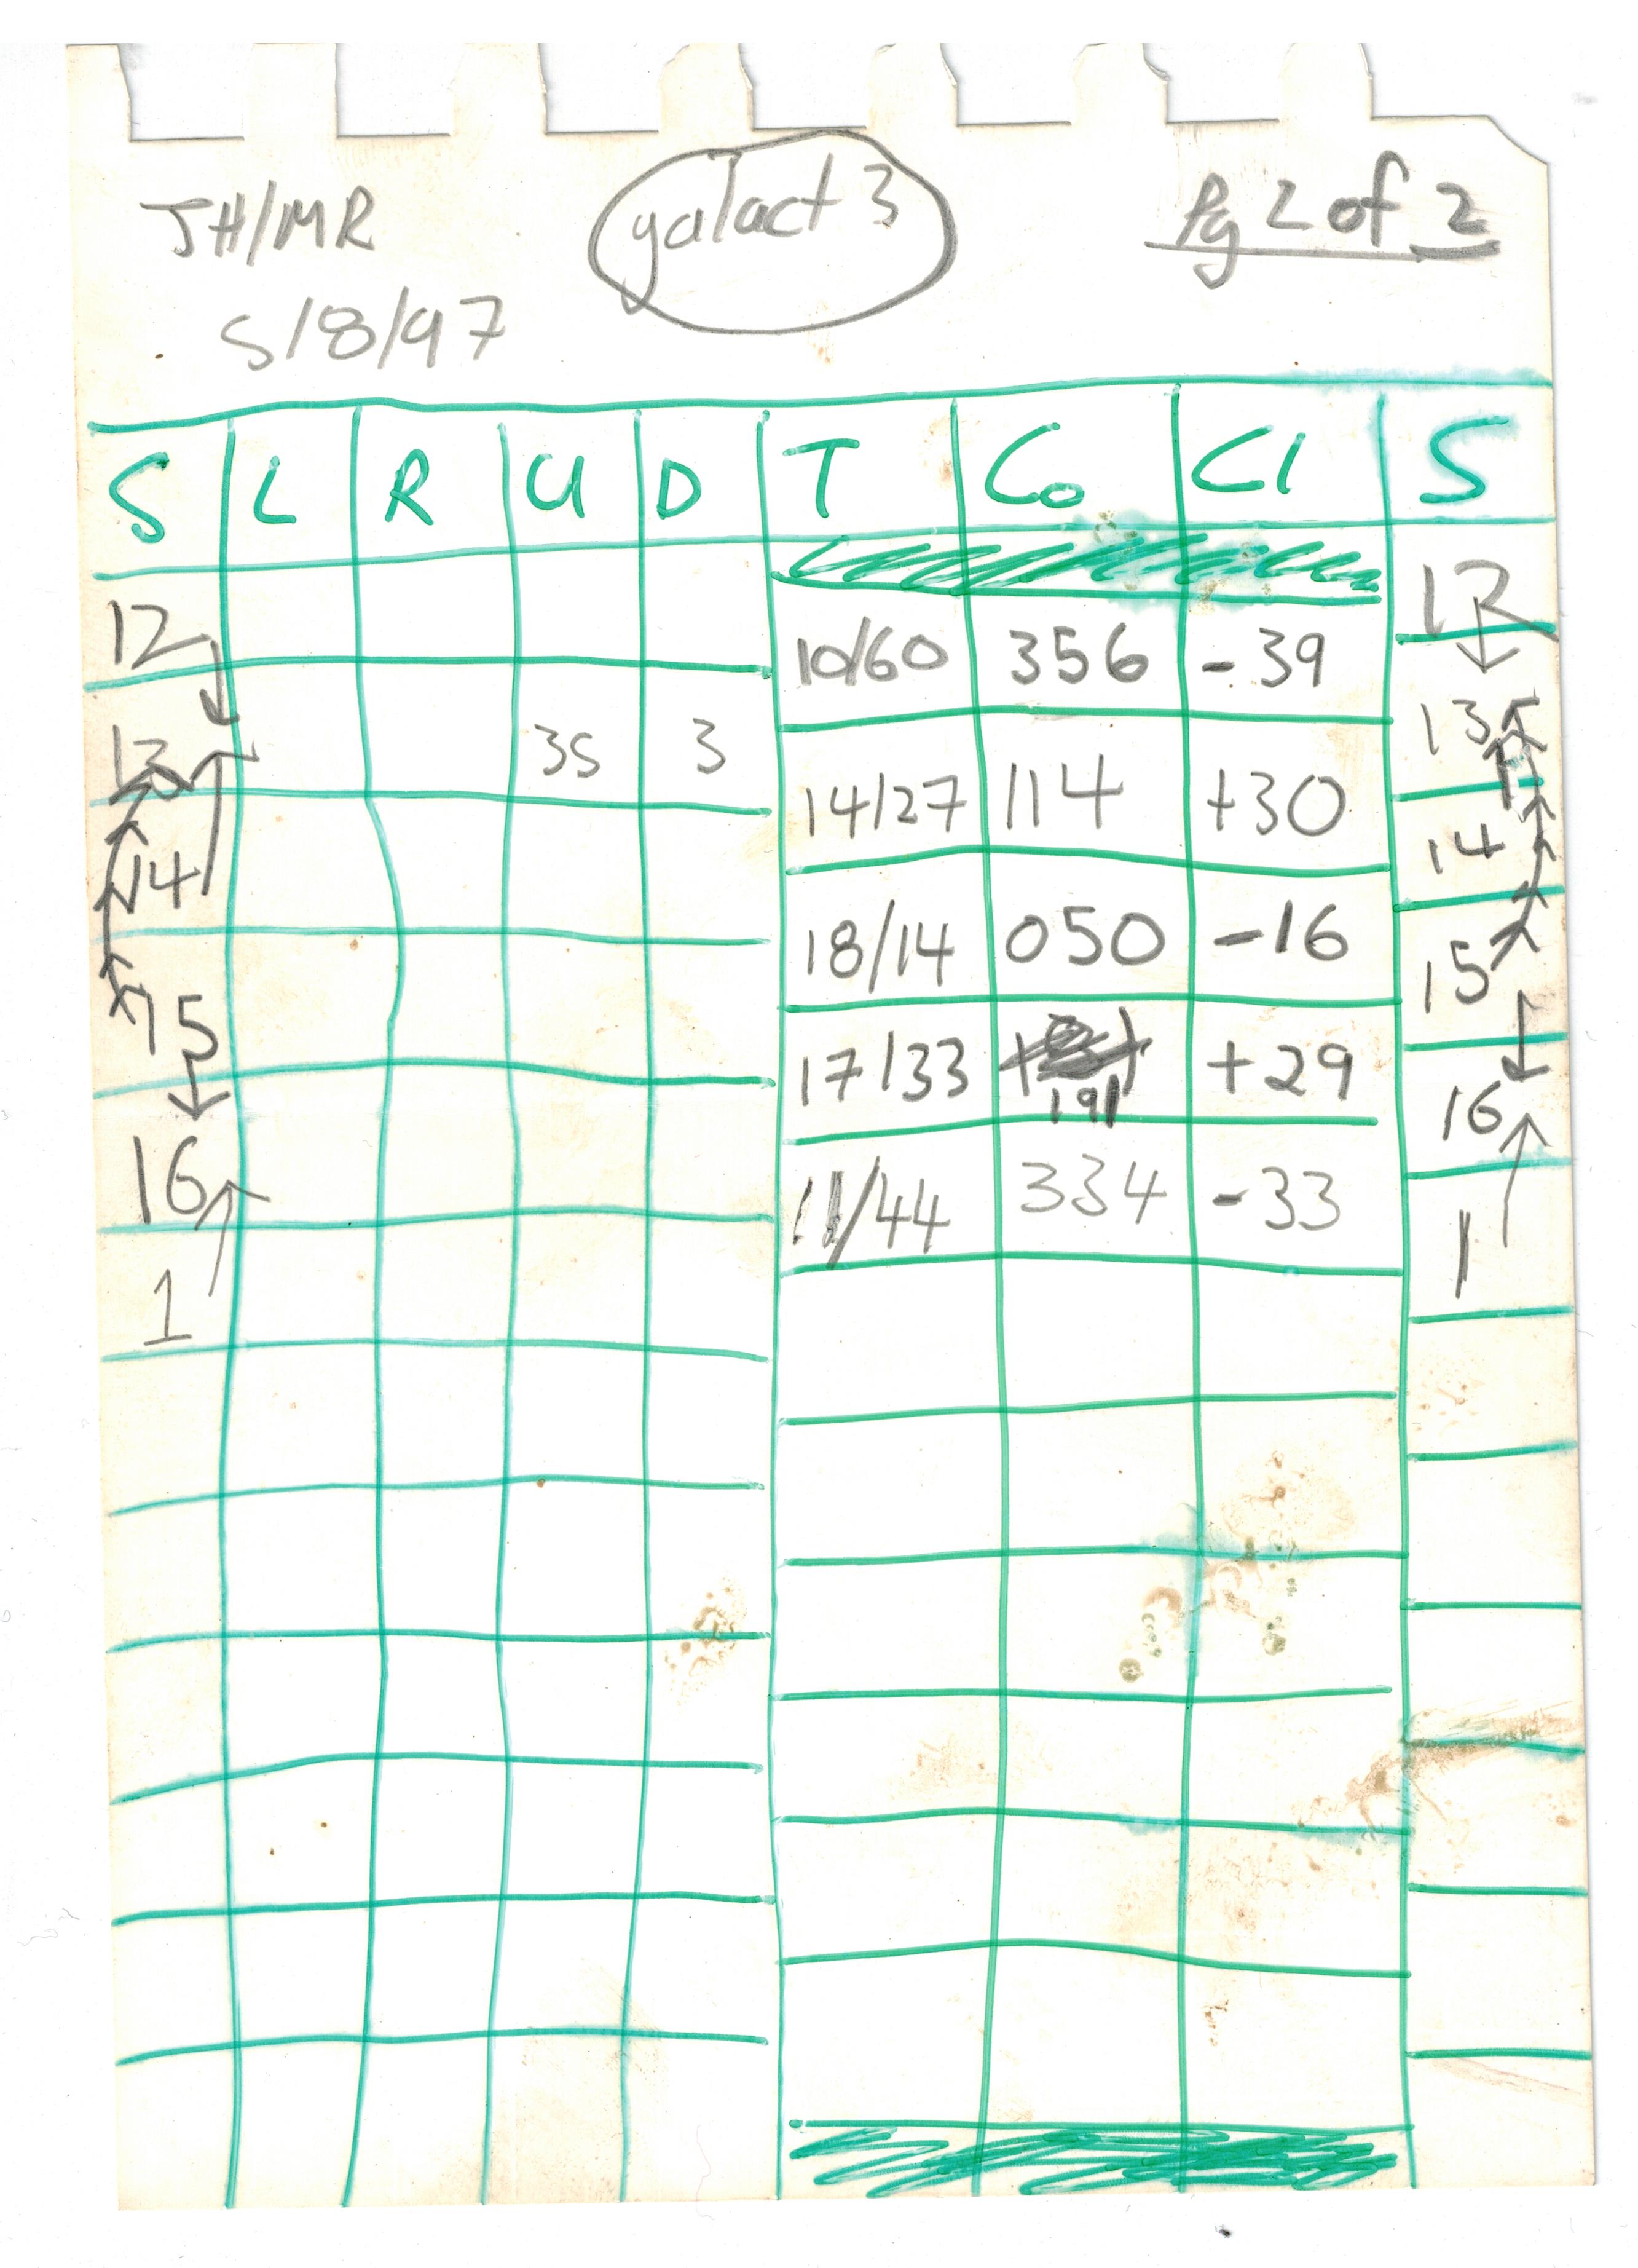 JH/MR galact 3 Pg 2 of 2
5/8/97
S L R U D T Co Cl S
12 12
10/60 356 -39
13 35 3 13
14/27 114 +30
14 14
18/14 050 -16
15 15
17/33 191 +29
16 16
11/44 334 -33
1 1